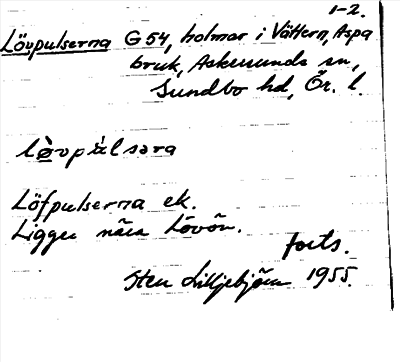 1-2.
Lövpulserna G 54, holmar i Vättern, Aspa
bruk, Askersunds sn,
Sundbo hd, Ör. l.
Löfpulserna ek.
Ligger nära Lövön.
forts.
Sten Lilljebjörn 1955.